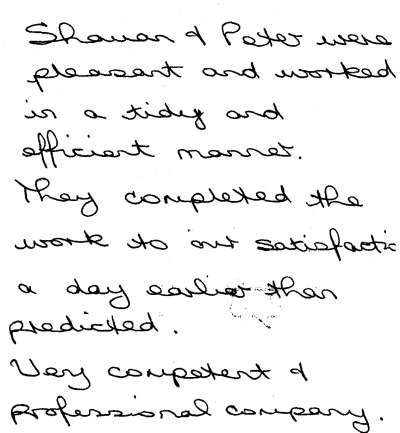 Shauan & Peter were
pleasant and worked
in a tidy and
efficient manner.
They completed the
work to our satisfactio
a day earlier than
predicted.
Very competent &
professional company.